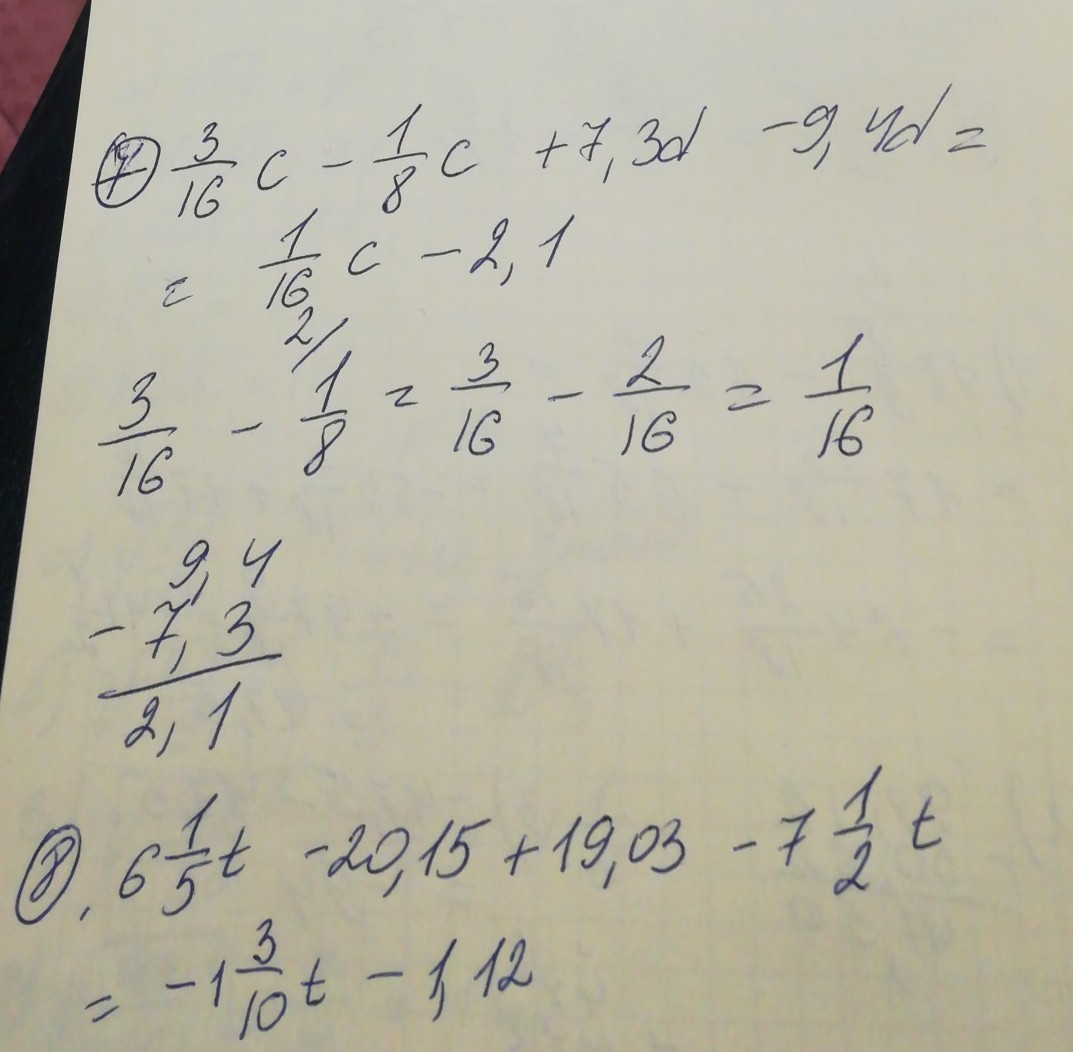 7 3/16 c - 1/8 c + 7,3d - 9,4d =
= 1/16 c - 2,1
2/
3/16 - 1/8 = 3/16 - 2/16 = 1/16
9,4
- 7,3
2,1
8. 6 1/5 t - 20,15 + 19,03 - 7 1/2 t
= -1 3/10 t - 1,12